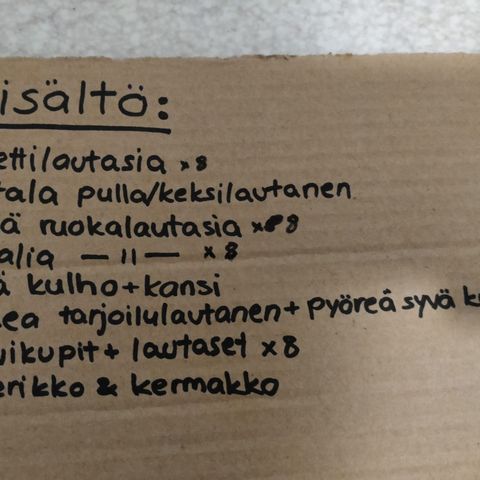 isältö:
ettilautasia x8
tala pulla/keksilautanen
ä ruokalautasia x8
alia — 11 — x8
ä kulho+kansi
ea tarjoilulautanen+ pyöreä syvä k
vikupit + lautaset x8
erikko & kermakko